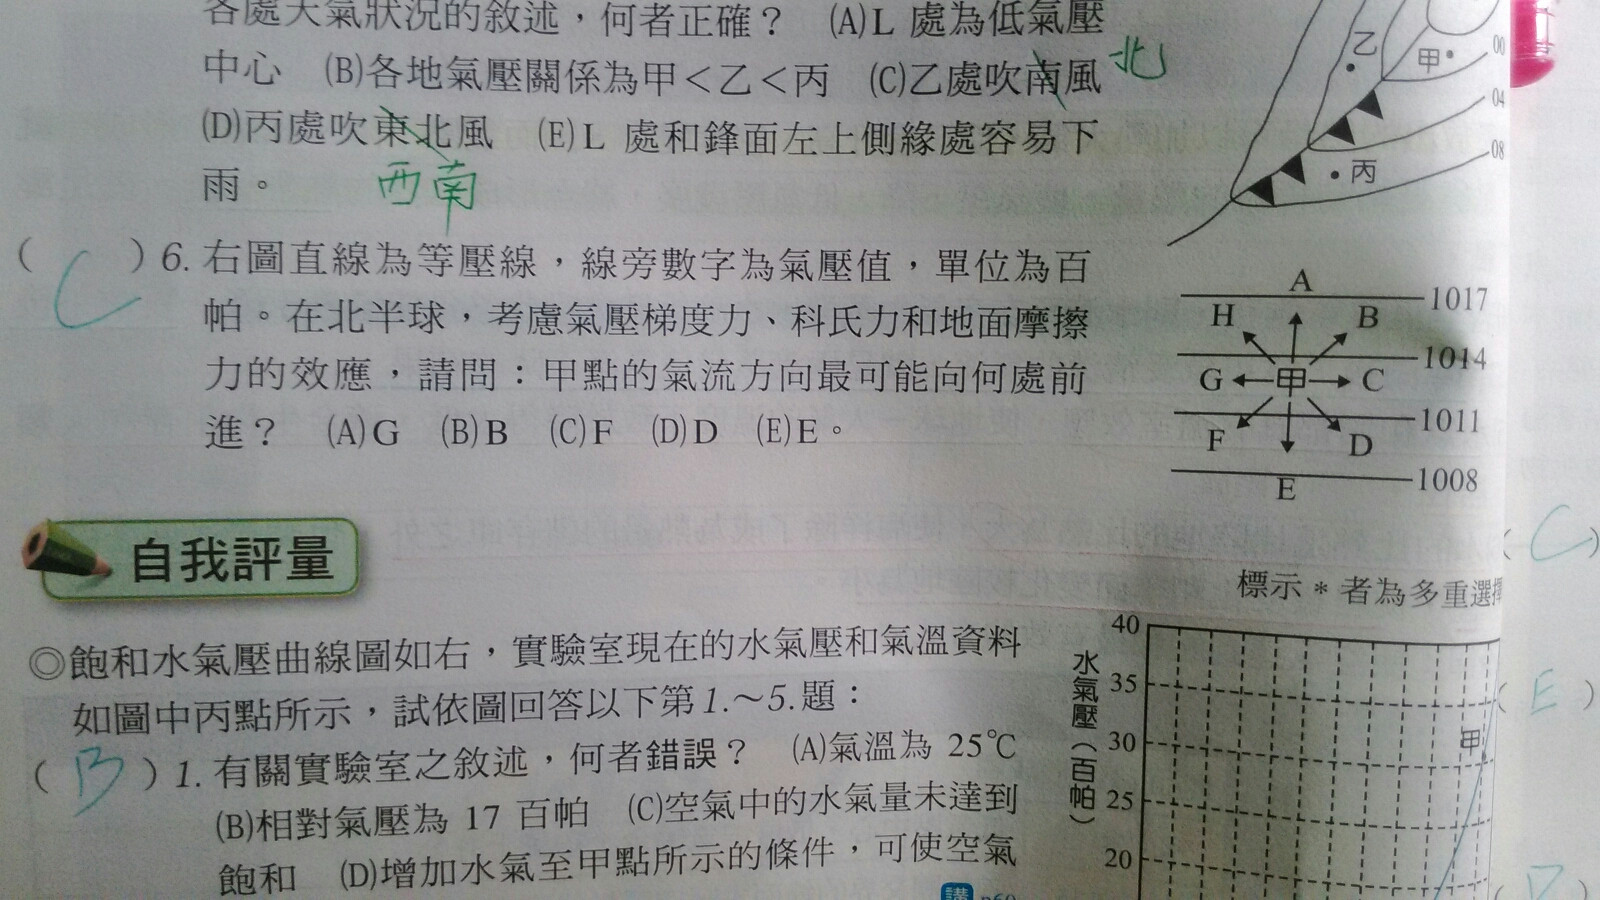 各處天氣狀況的敘述，何者正確？ (A)L 處為低氣壓
中心 (B)各地氣壓關係為甲＜乙＜丙 (C)乙處吹南風 北
(D)丙處吹東北風 (E)L 處和鋒面左上側緣處容易下
雨。 西南
乙
甲
丙
00
04
08
( C )6. 右圖直線為等壓線，線旁數字為氣壓值，單位為百
帕。在北半球，考慮氣壓梯度力、科氏力和地面摩擦
力的效應，請問：甲點的氣流方向最可能向何處前
進？ (A)G (B)B (C)F (D)D (E)E。
A
1017
H B
1014
G 甲 C
1011
F D
1008
E
自我評量
( C )
標示 * 者為多重選擇
◎飽和水氣壓曲線圖如右，實驗室現在的水氣壓和氣溫資料
如圖中丙點所示，試依圖回答以下第1.～5.題：
( B )1. 有關實驗室之敘述，何者錯誤？ (A)氣溫為 25℃
(B)相對氣壓為 17 百帕 (C)空氣中的水氣量未達到
飽和 (D)增加水氣至甲點所示的條件，可使空氣
講 p60
水氣壓（百帕）
40
35
30
25
20
甲
( E )